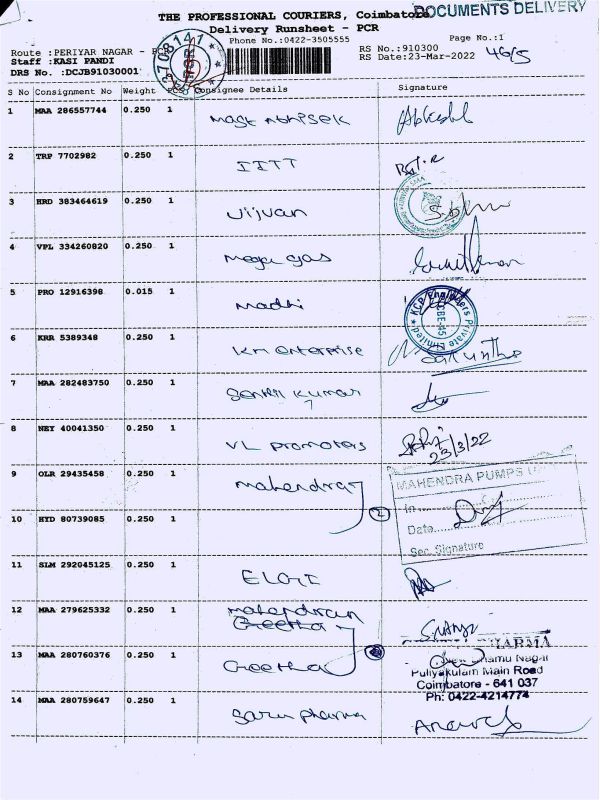 THE PROFESSIONAL COURIERS, Coimbatore
DOCUMENTS DELIVERY
Delivery Runsheet - PCR
Phone No.:0422-3505555
Page No.:1
Route :PERIYAR NAGAR - PCR
RS No.:910300
Staff :KASI PANDI
RS Date:23-Mar-2022
DRS No. :DCJB91030001
S No Consignment No Weight PCS Consignee Details Signature
1 MAA 286557744 0.250 1
2 TRP 7702982 0.250 1 IITT
3 HRD 383464619 0.250 1 Vijvan
4 VPL 334260820 0.250 1 mega gas
5 PRO 12916398 0.015 1 madhi
KCP Engineers Private Limited
CBE-45
6 KRR 5389348 0.250 1 km enterprise
7 MAA 282483750 0.250 1 Senthil kumar
8 NEY 40041350 0.250 1 VL promoters
23/3/22
9 OLR 29435458 0.250 1 mahendra
MAHENDRA PUMPS
In
Date
Sec. Signature
10 HYD 80739085 0.250 1
2
11 SLM 292045125 0.250 1 ELGI
12 MAA 279625332 0.250 1
Geetha
13 MAA 280760376 0.250 1 Geetha
Puliyakulam Main Road
Coimbatore - 641 037
Ph: 0422-4214774
14 MAA 280759647 0.250 1 Saru pharma